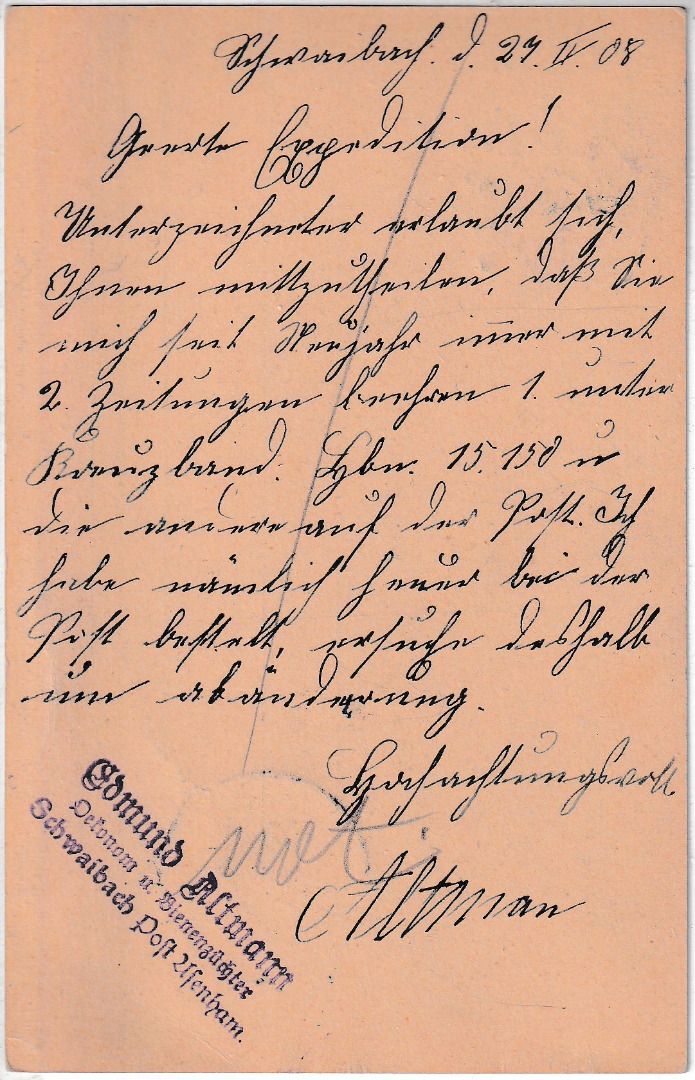 Schwaibach. d. 27. IV. 08
Geerte Expedition!
Unterzeichneter erlaubt sich,
Ihnen mittzutheilen, daß Sie
mich seit Neujahr immer mit
2. Zeitungen beehren 1. unter
Kreuzband. Hbn. 15.150 u
die andere auf der Post. Ich
habe nämlich heuer bei der
Post bestelt, ersuche deshalb
um abänderung.
Hochachtungsvoll
Altman
Edmund Altmann
Oekonom u. Bienenzüchter
Schwaibach Post Usenham.